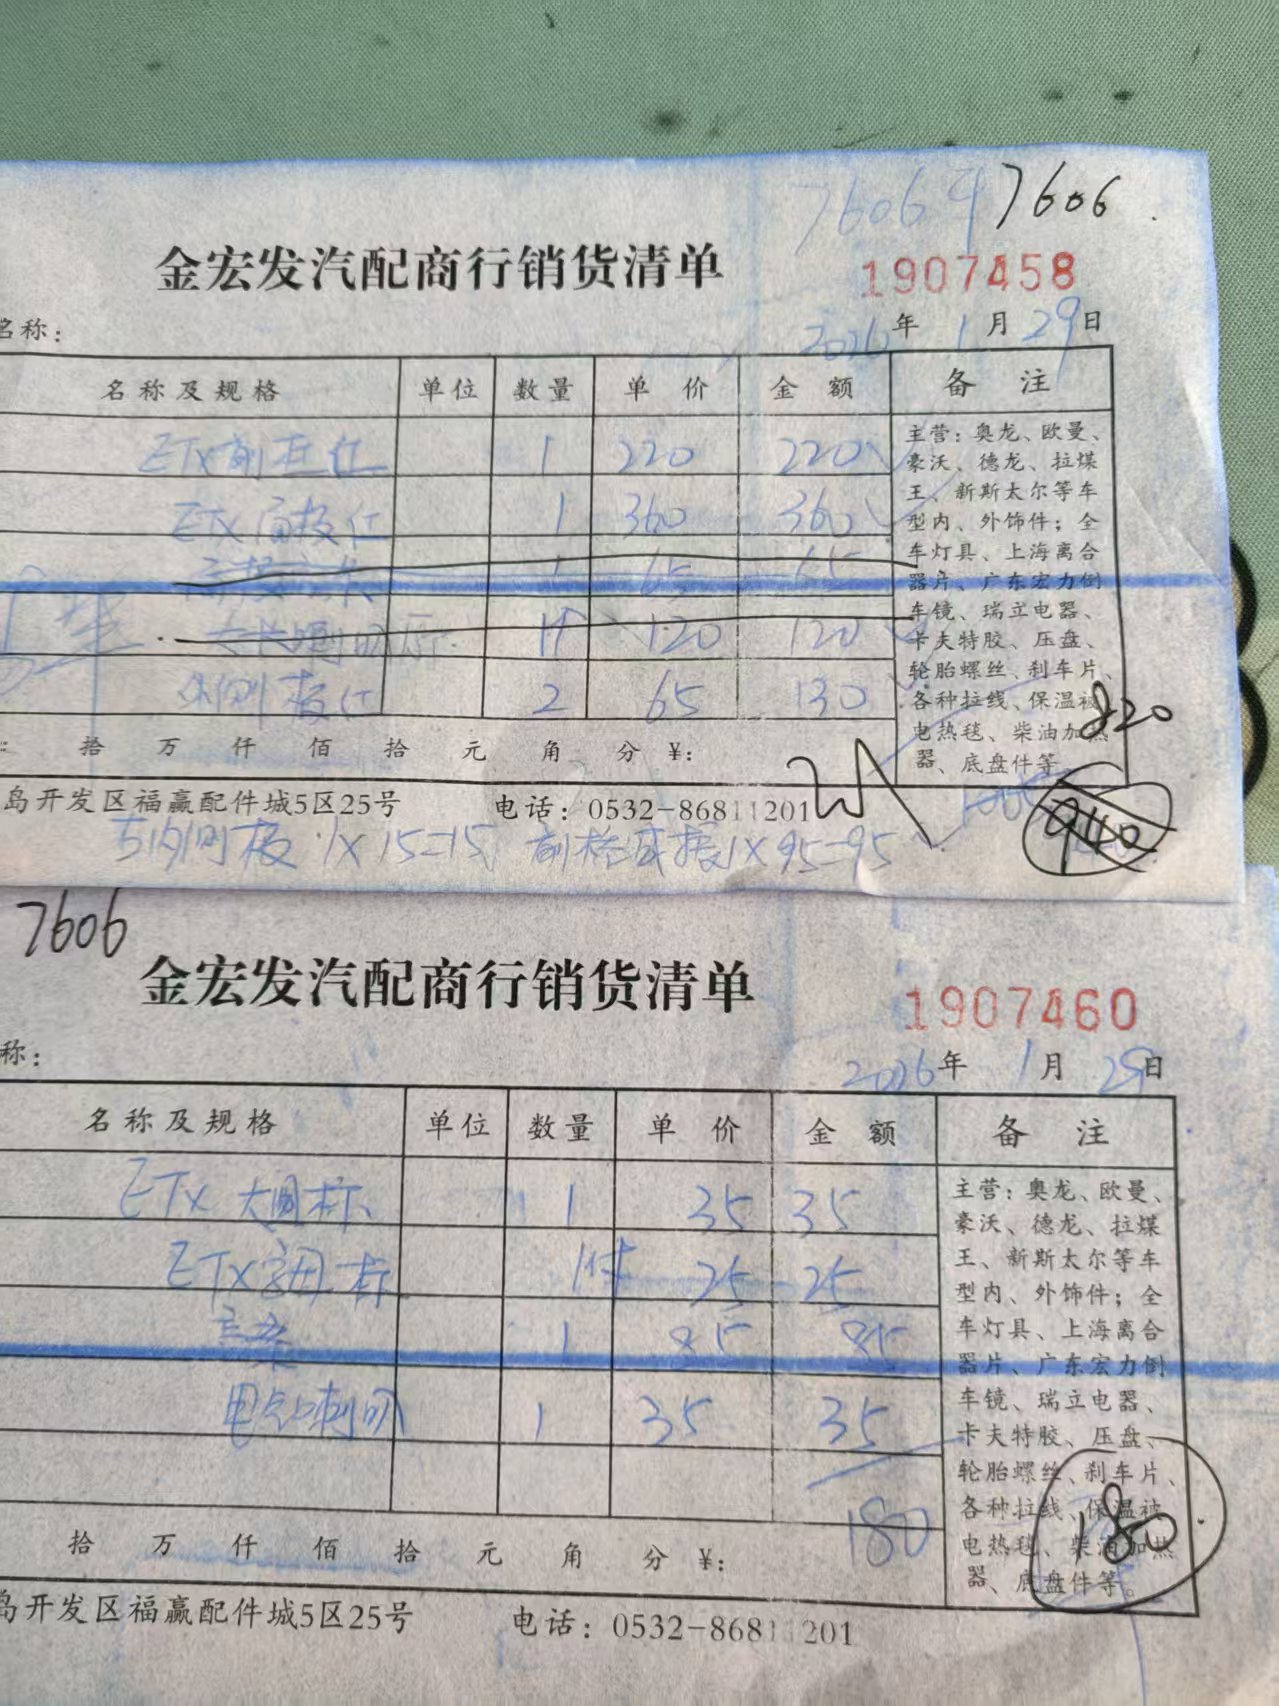 7606年 7606
金宏发汽配商行销货清单 1907458
名称: 2026年 1月 29日
名称及规格 单位 数量 单价 金额 备注
ETX 1 220 220
ETX高板仕 1 360 360
1 65 65
1付 120 120
侧板仕 2 65 130
主营:奥龙、欧曼、
豪沃、德龙、拉煤
王、新斯太尔等车
型内、外饰件;全
车灯具、上海离合
器片、广东宏力倒
车镜、瑞立电器、
卡夫特胶、压盘、
轮胎螺丝、刹车片、
各种拉线、保温被
电热毯、柴油加热
器、底盘件等
820
拾 万 仟 佰 拾 元 角 分 ¥:
岛开发区福赢配件城5区25号 电话:0532-86811201
940
内侧板 1×15=15 1×95=95
7606
金宏发汽配商行销货清单 1907460
称: 2026年 1月 29日
名称及规格 单位 数量 单价 金额 备注
ETX 大圆标 1 35 35
ETX字母标 1付 25 25
1 85 85
电气喇叭 1 35 35
180
主营:奥龙、欧曼、
豪沃、德龙、拉煤
王、新斯太尔等车
型内、外饰件;全
车灯具、上海离合
器片、广东宏力倒
车镜、瑞立电器、
卡夫特胶、压盘、
轮胎螺丝、刹车片、
各种拉线、保温被
电热毯、柴油加热
器、底盘件等。
180
拾 万 仟 佰 拾 元 角 分 ¥:
岛开发区福赢配件城5区25号 电话:0532-86811201